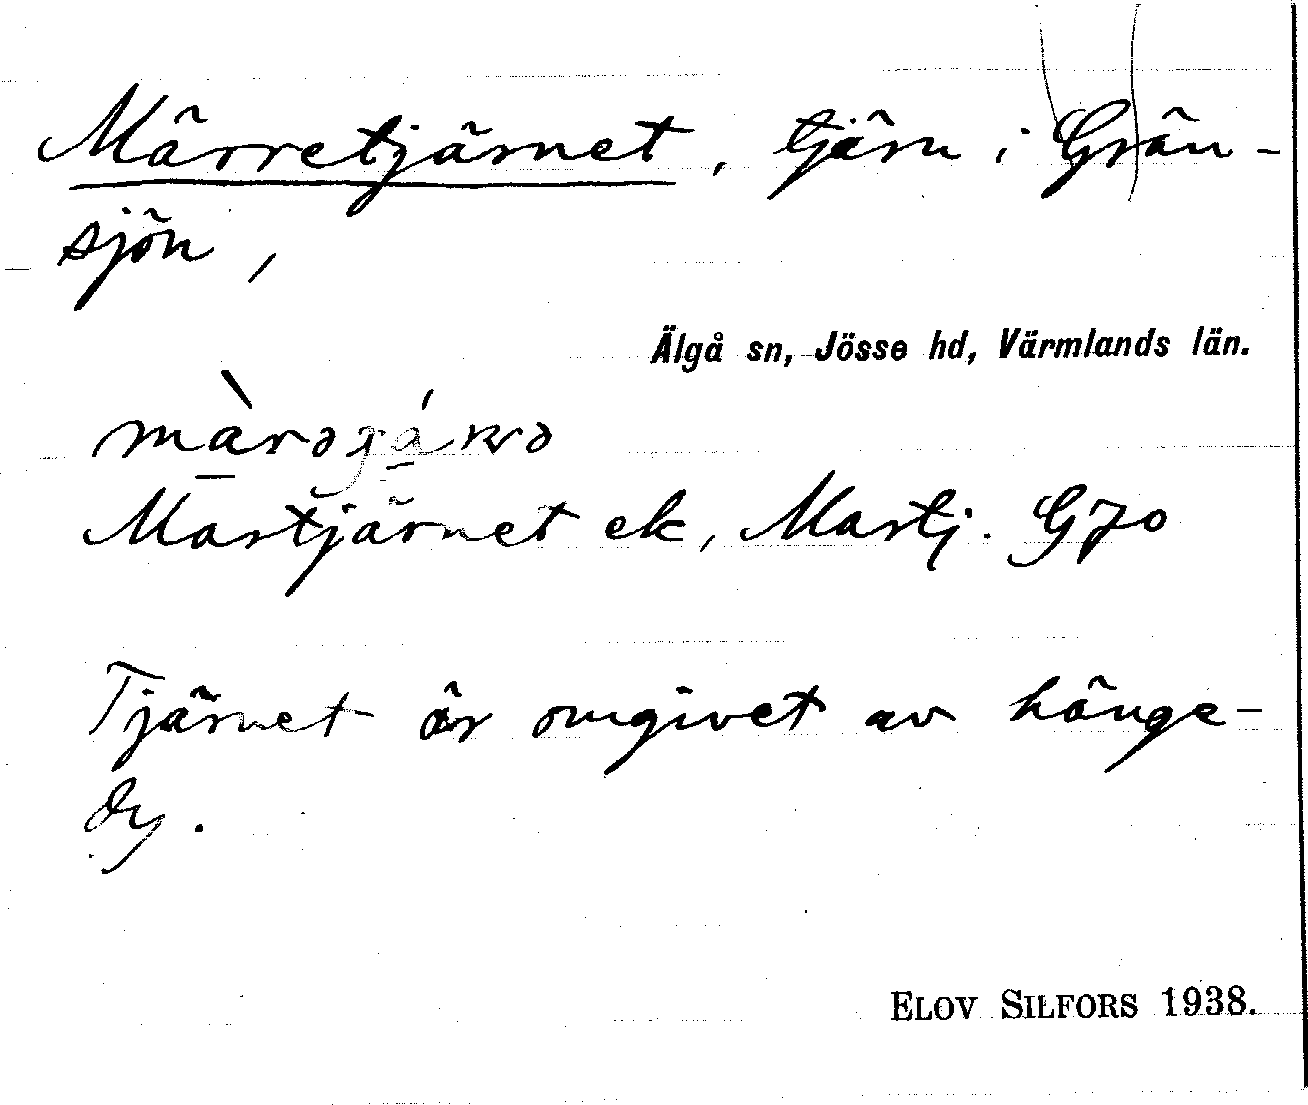 Märretjärnet, tjärn i Grän-
sjön,
Älgå sn, Jösse hd, Värmlands län.
Mastjärnet ek, Mastj. G70
Tjärnet är omgivet av hänge-
dy.
ELOV SILFORS 1938.